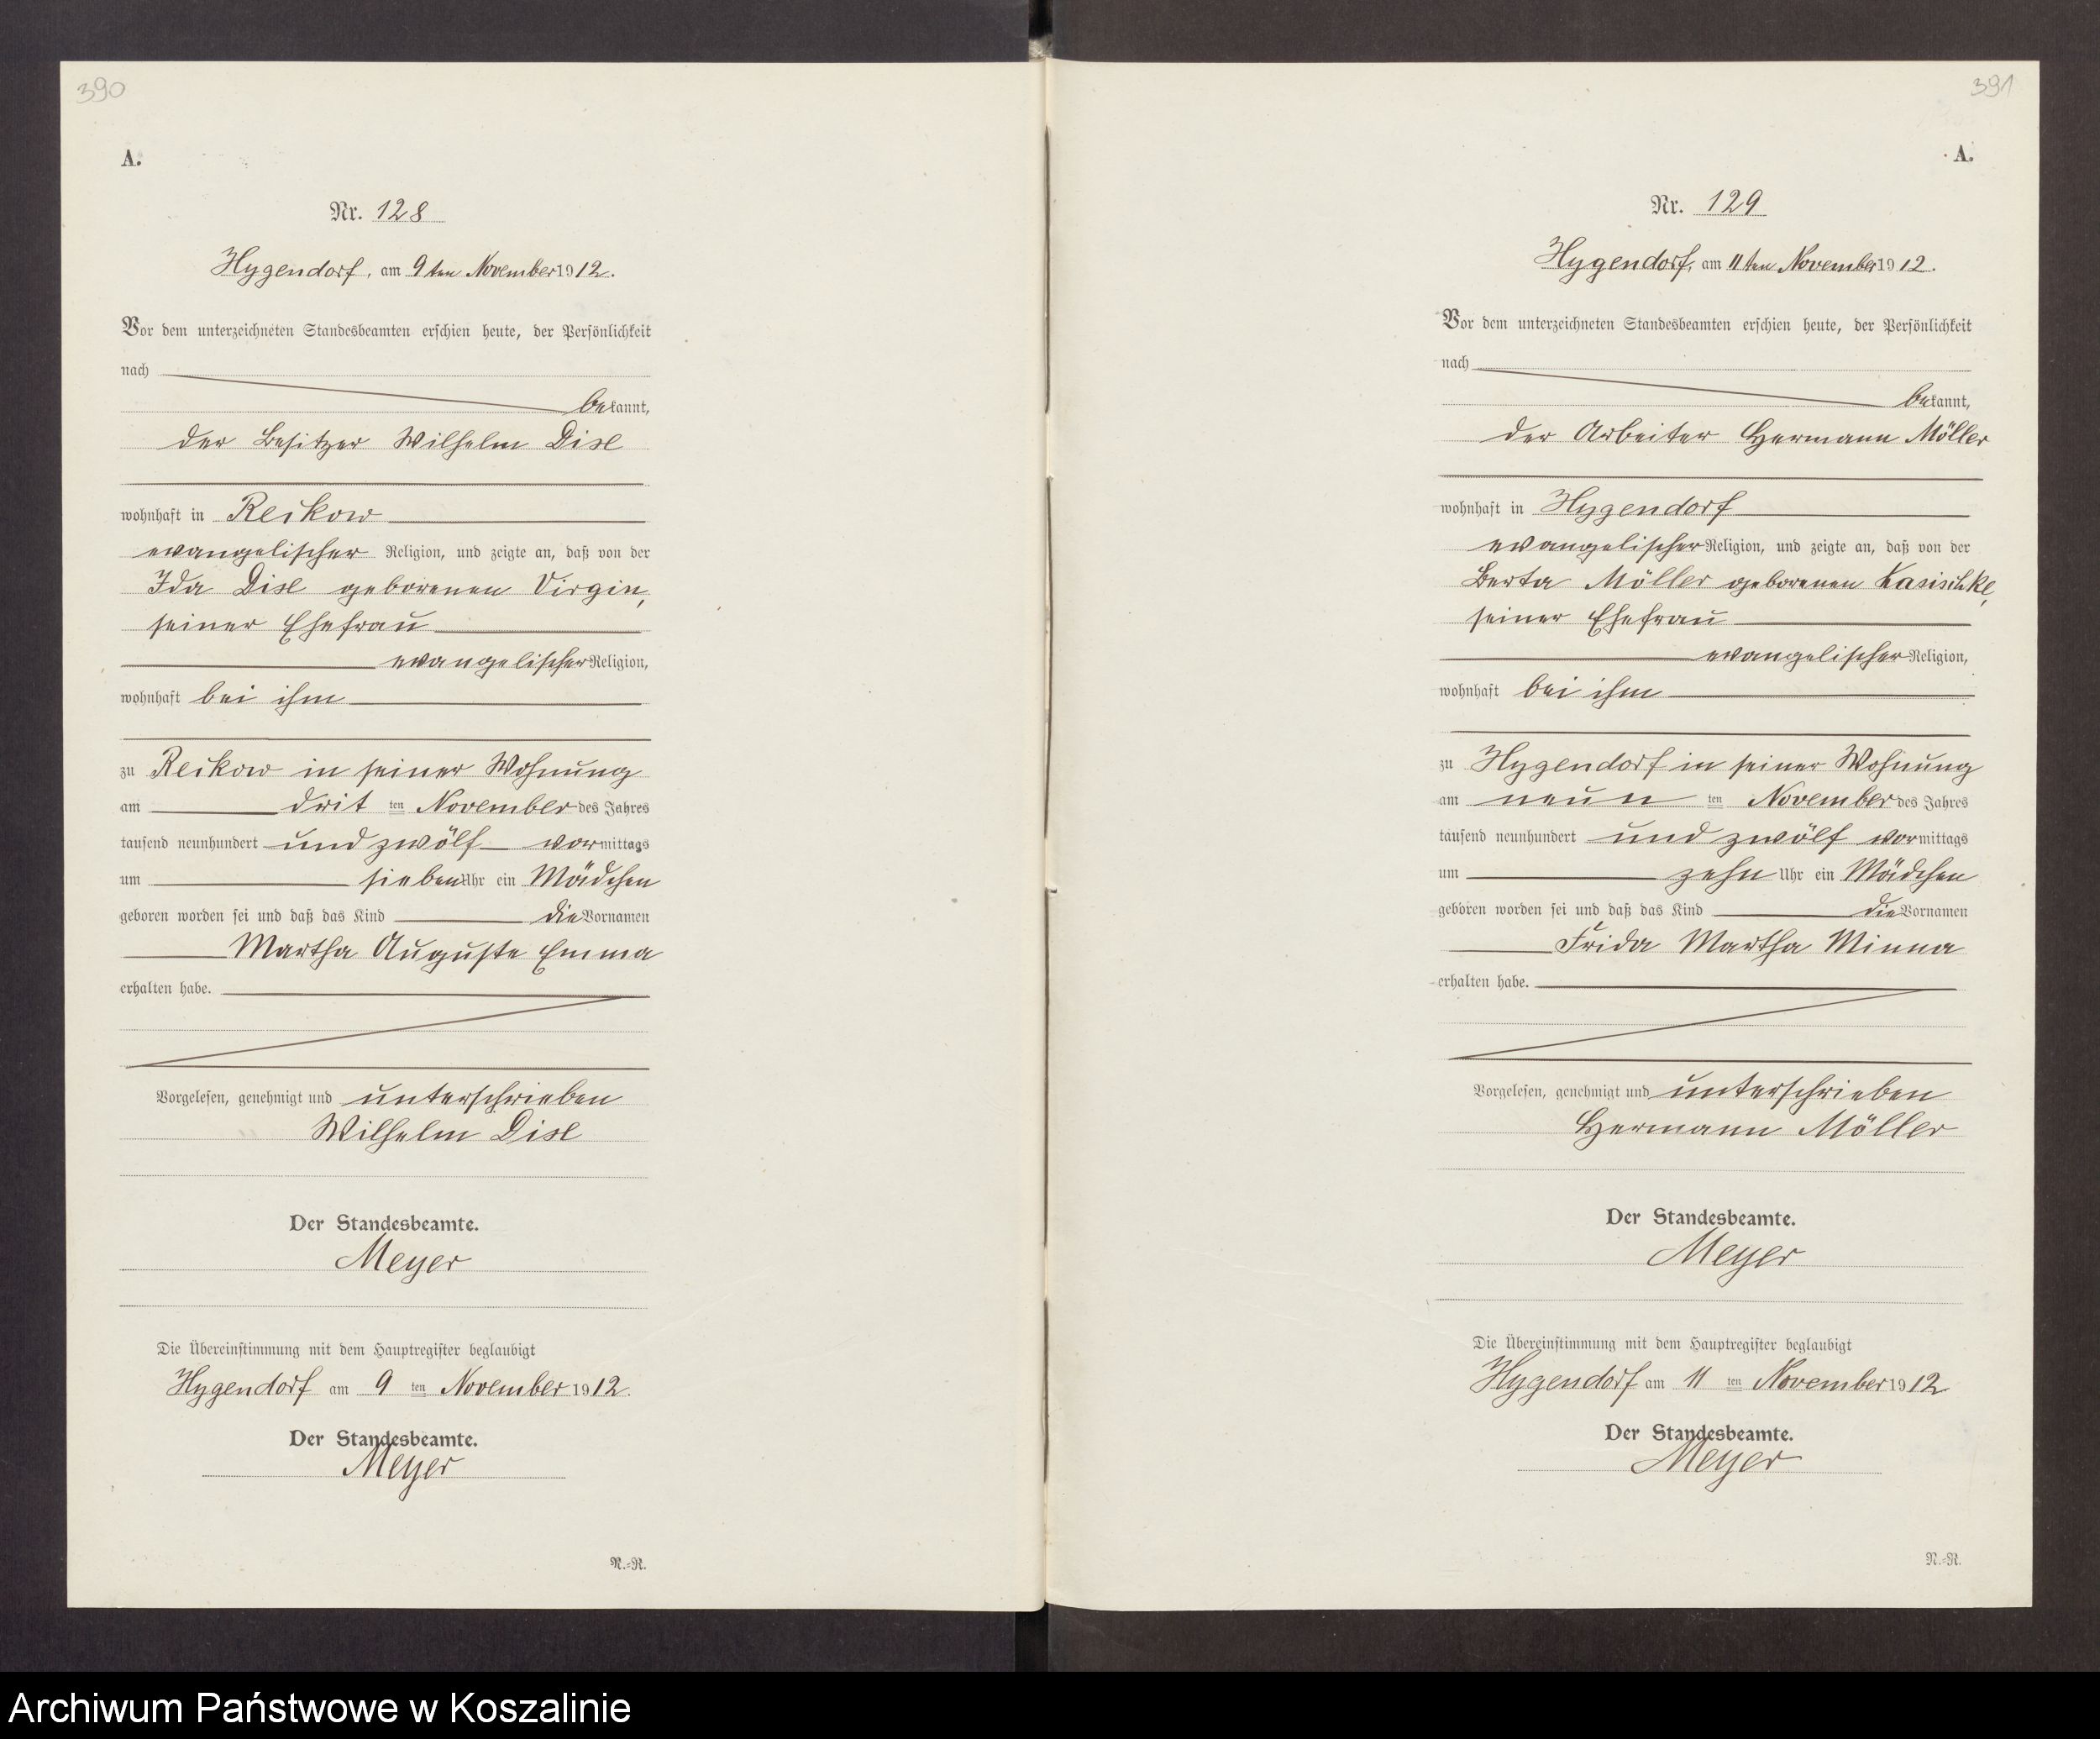 390
A.
Nr. 128
Hygendorf, am 9ten November 1912.
Vor dem unterzeichneten Standesbeamten erschien heute, der Persönlichkeit
nach
bekannt,
der Besitzer Wilhelm Dise
wohnhaft in Reikow
evangelischer Religion, und zeigte an, daß von der
Ida Dise geborenen Virgin,
seiner Ehefrau
evangelischer Religion,
wohnhaft bei ihm
zu Reikow in seiner Wohnung
am drit ten November des Jahres
tausend neunhundert und zwölf vormittags
um sieben Uhr ein Mädchen
geboren worden sei und daß das Kind die Vornamen
Martha Auguste Emma
erhalten habe.
Vorgelesen, genehmigt und unterschrieben
Wilhelm Dise
Der Standesbeamte.
Meyer
Die Übereinstimmung mit dem Hauptregister beglaubigt
Hygendorf am 9 ten November 1912.
Der Standesbeamte.
Meyer
N.=R.
391
A.
Nr. 129
Hygendorf, am 11ten November 1912.
Vor dem unterzeichneten Standesbeamten erschien heute, der Persönlichkeit
nach
bekannt,
der Arbeiter Hermann Möller
wohnhaft in Hygendorf
evangelischer Religion, und zeigte an, daß von der
Berta Möller geborenen Kasischke,
seiner Ehefrau
evangelischer Religion,
wohnhaft bei ihm
zu Hygendorf in seiner Wohnung
am neun ten November des Jahres
tausend neunhundert und zwölf vormittags
um zehn Uhr ein Mädchen
geboren worden sei und daß das Kind die Vornamen
Frida Martha Minna
erhalten habe.
Vorgelesen, genehmigt und unterschrieben
Hermann Möller
Der Standesbeamte.
Meyer
Die Übereinstimmung mit dem Hauptregister beglaubigt
Hygendorf am 11 ten November 1912
Der Standesbeamte.
Meyer
N.=R.
Archiwum Państwowe w Koszalinie